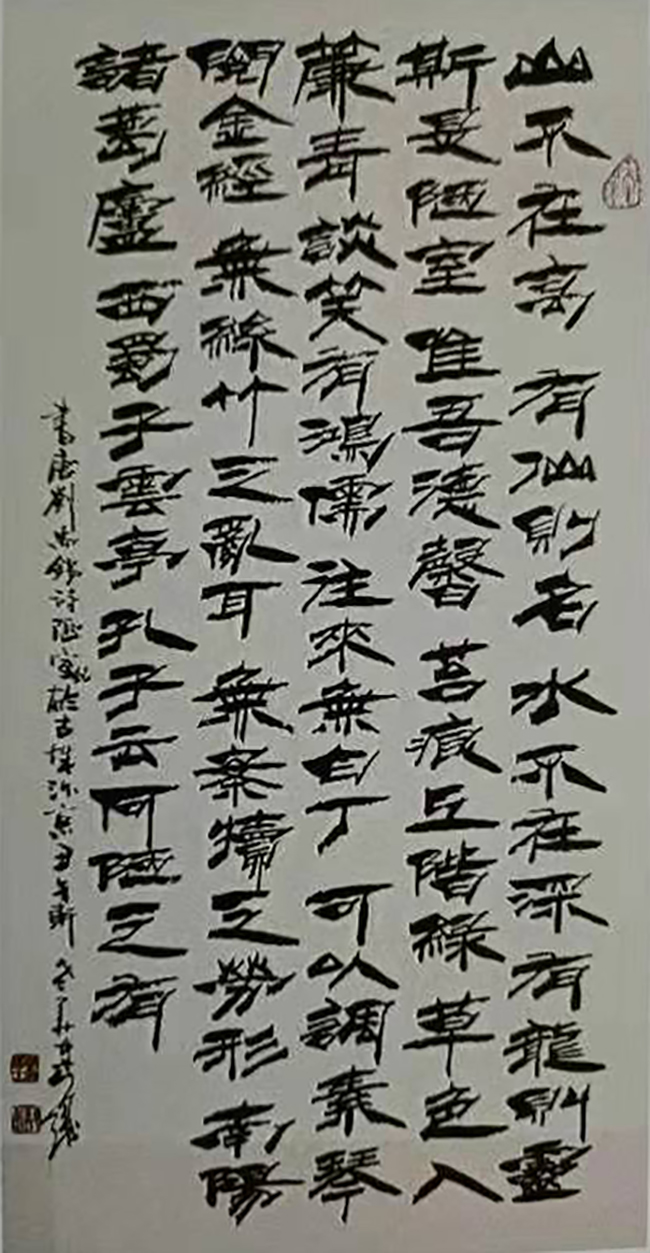 山不在高有仙則名水不在深有龍則靈
斯是陋室唯吾德馨苔痕上階綠草色入
簾青談笑有鴻儒往來無白丁可以調素琴
閱金經無絲竹之亂耳無案牘之勞形南陽
諸葛廬西蜀子雲亭孔子云何陋之有
書唐劉禹錫詩陋室銘於古